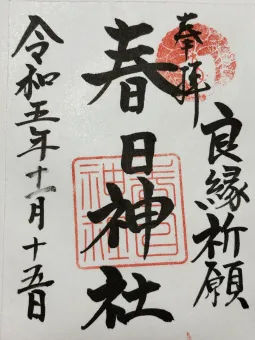 奉拝
良縁祈願
春日神社
令和五年十一月十五日
春日
神社